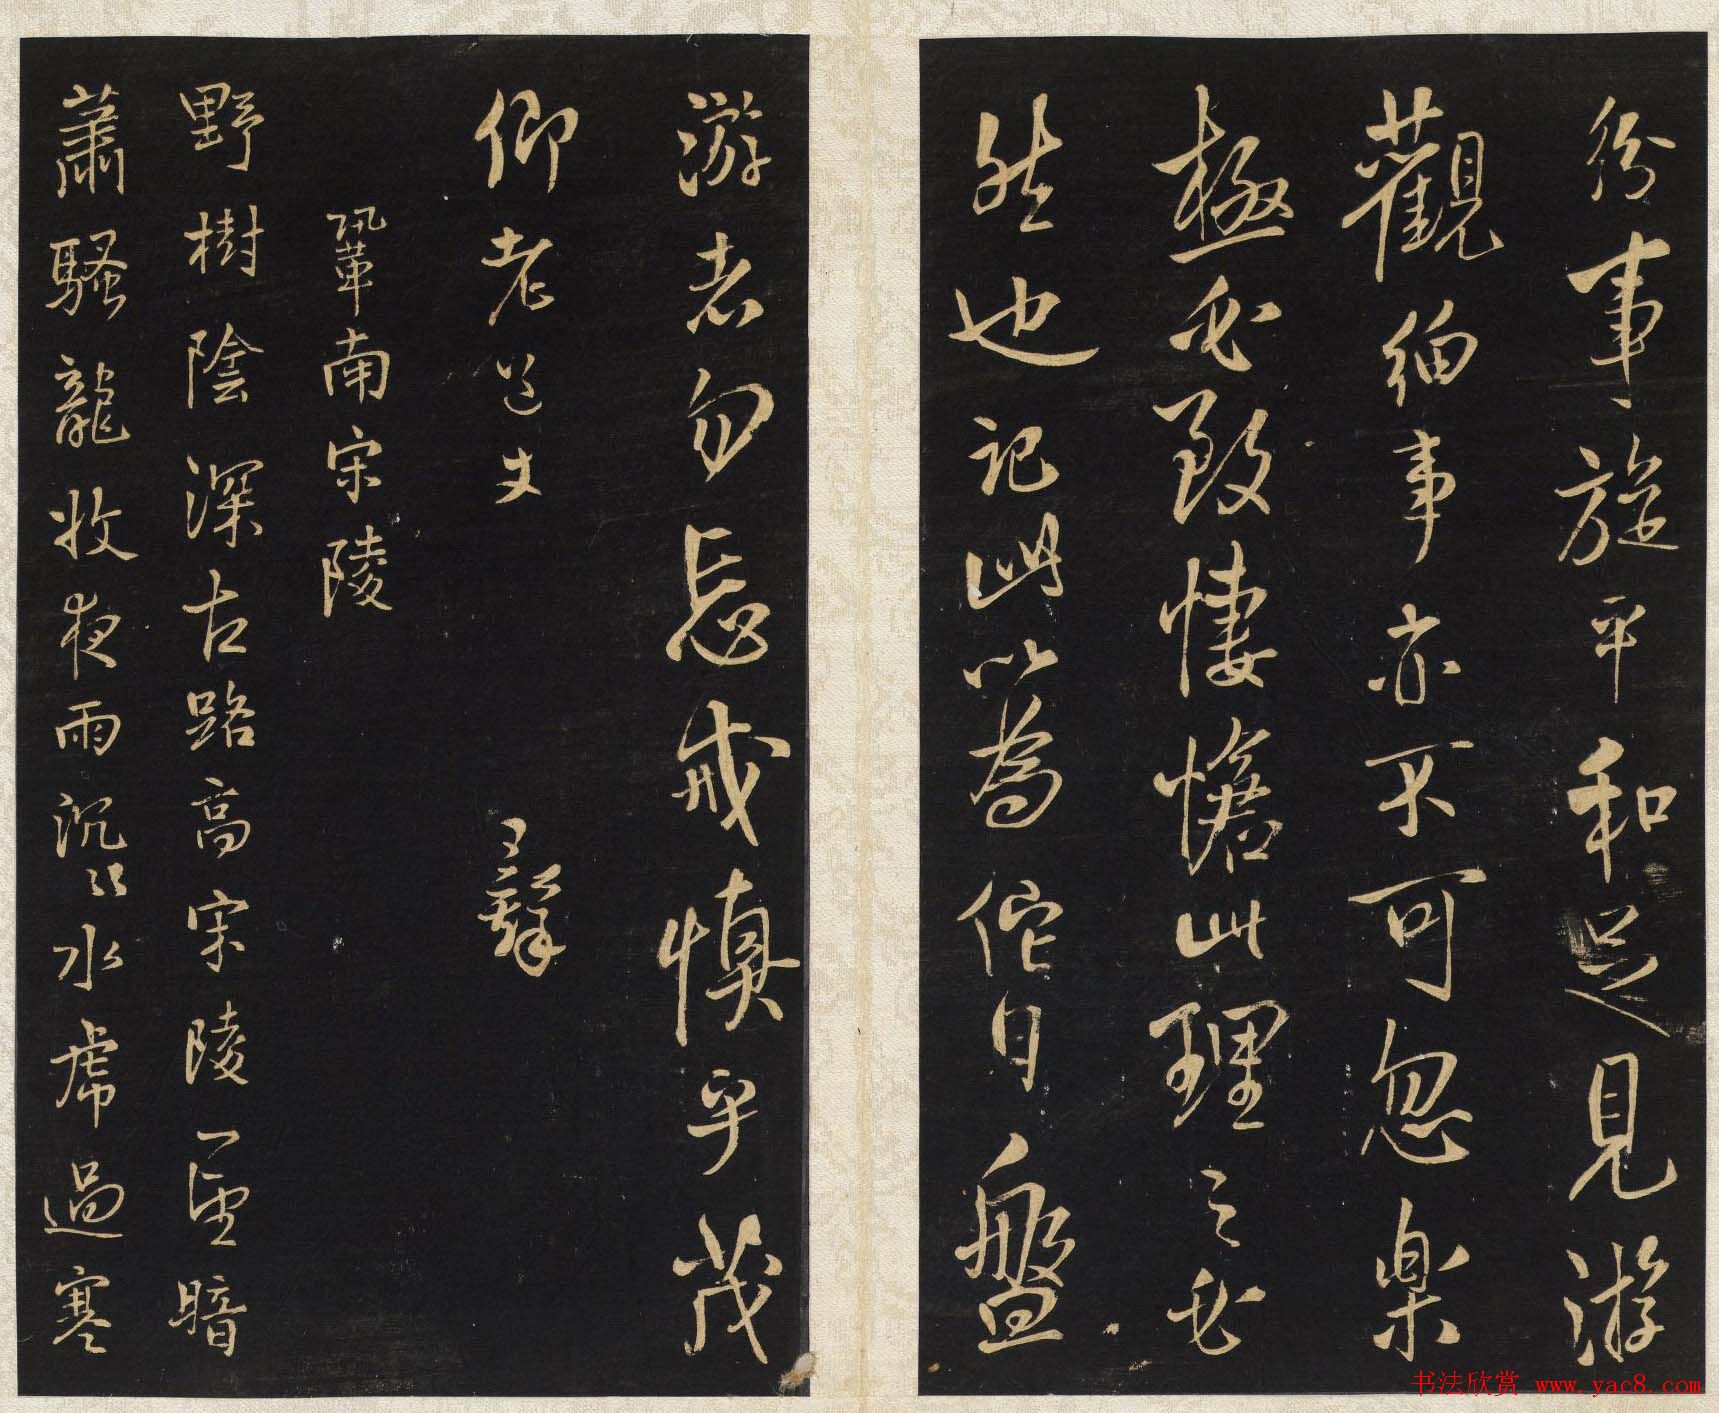 紛事旋平和足見游
觀細事亦不可忽樂
極必致悽愴此理之必
然也記此以為他日盤
游者勿忘戒慎乎茂
仰老道丈
王鐸
鞏革南宋陵
野樹陰深古路高宋陵一望暗
蕭騷龍收夜雨沉沉水虎過寒
书法欣赏 www.yac8.com